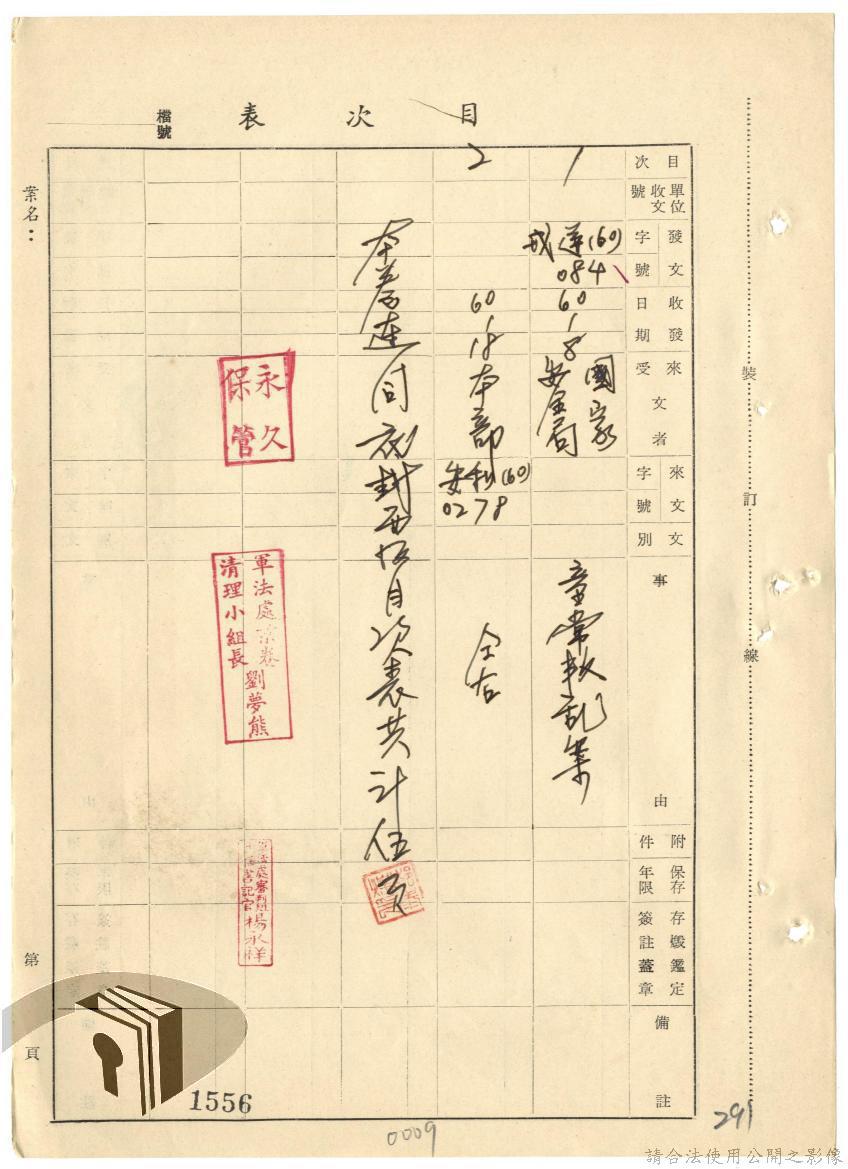 目次表
檔號
目次
單位收文號
發文字號
收發日期
來受文者
來文字號
文別
事由
附件
保存年限
存燬鑑定簽註蓋章
備註
1
(60)
084
60
1
8
國家安全局
叛乱案
2
60
1
18
本部
(60)
0278
仝右
本卷連同
目次表共計伍頁
永久保管
軍法處案卷
清理小組長劉夢熊
楊永祥
案名：
第
頁
裝訂線
1556
0009
291
請合法使用公開之影像